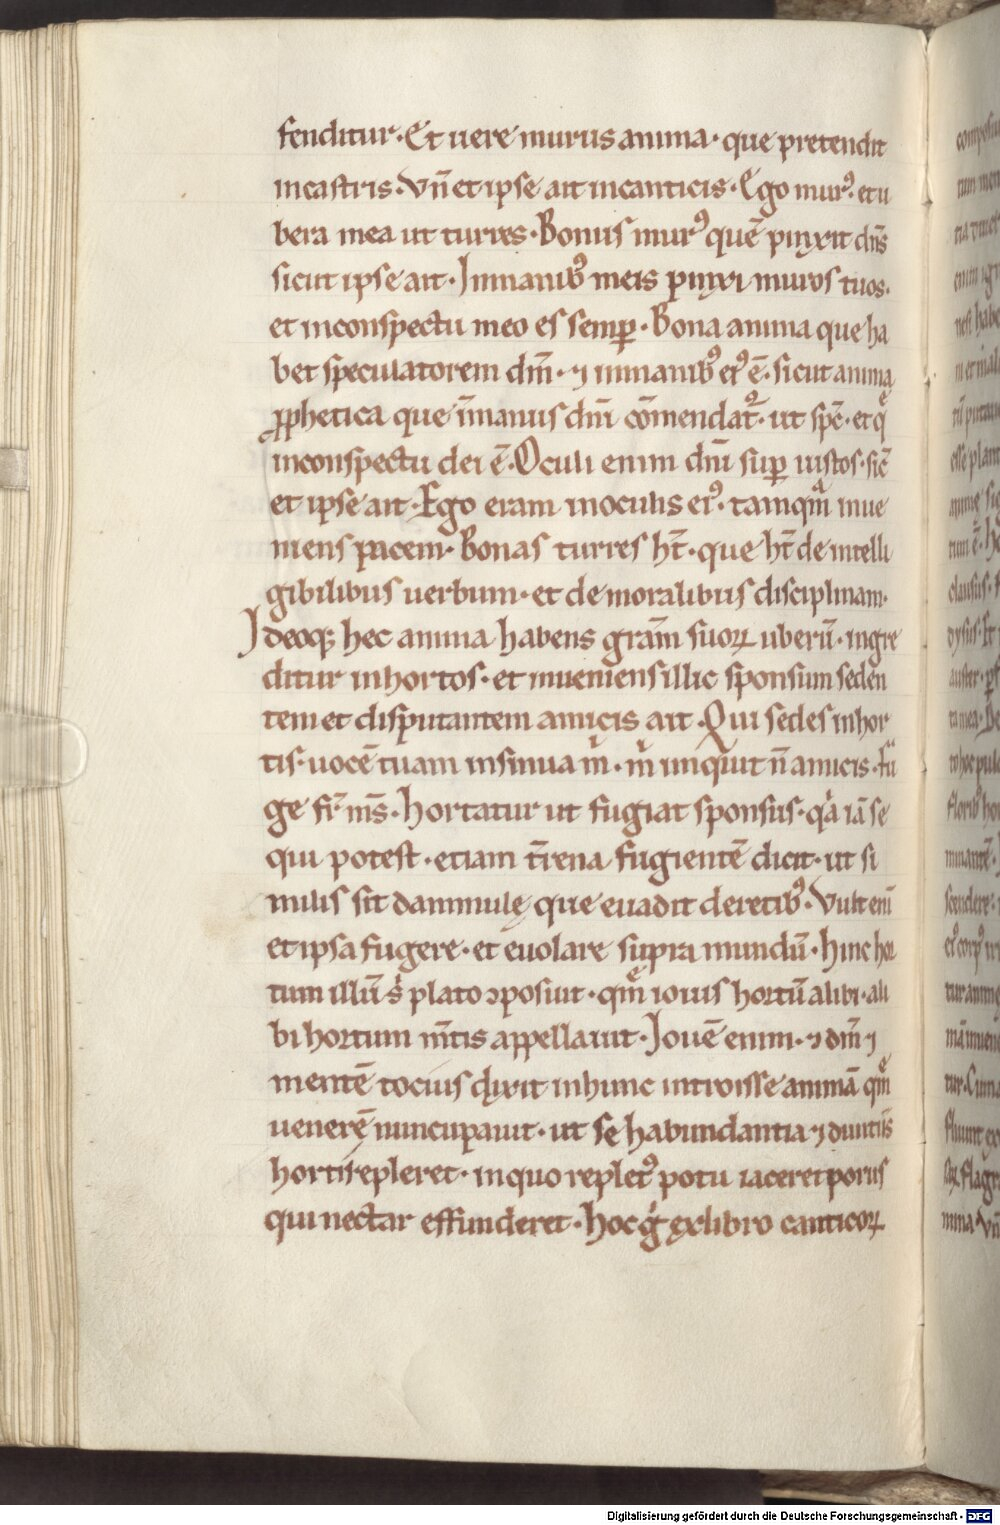 fenditur. Et uere murus anima. que pretendit
incastris. Vn̄ et ipse ait incanticis. Ego murꝰ. et u
bera mea ut turres. Bonus murꝰ quē pinxit dn̄s
sicut ipse ait. Inmanibꝰ meis pinxi muros tuos.
et inconspectu meo es semꝑ. Bona anima que ha
bet speculatorem dm̄. ⁊ inmanibꝰ eiꝰ ē. sicut anima
ꝓphetica que īmanus dn̄i cōmendat᷑. ut sp̄c. et q̄
inconspectu dei ē. Oculi enim dn̄i suꝑ iustos. sic̄
et ipse ait. Ego eram inoculis eiꝰ. tamqm̄ inue
niens pacem. Bonas turres ht̄. que ht̄ de intelli
gibilibus uerbum. et de moralibus disciplinam.
Ideoqꝫ hec anima habens grām suoꝝ uberū. ingre
ditur inhortos. et inueniens illic sponsum seden
tem et disputantem amicis ait. Qui sedes inhor
tis. uocē tuam insinua m̍. m̍ inquit n̄ amicis. Fu
ge fr̄ ms̄. Hortatur ut fugiat sponsus. qͥa iā se
qui potest. etiam t̄rena fugientē dicit. ut si
milis sit dammulę que euadit deretibꝰ. Vult enī
et ipsa fugere. et euolare supra mundū. Hinc hor
tum illū s̍ plato ɔposuit. qm̄ iouis hortū alibi. ali
bi hortum m̄tis appellauit. Iouē enim. ⁊ dm̄ ⁊
mentē tocius dixit inhunc introisse animā qm̄
uenerē nuncupauit. ut se habundantia ⁊ diuitiis
horti repleret. inquo repletꝰ potu iaceret porus
qui nectar effunderet. Hoc g̍ exlibro canticoꝝ
Digitalisierung gefördert durch die Deutsche Forschungsgemeinschaft - DFG